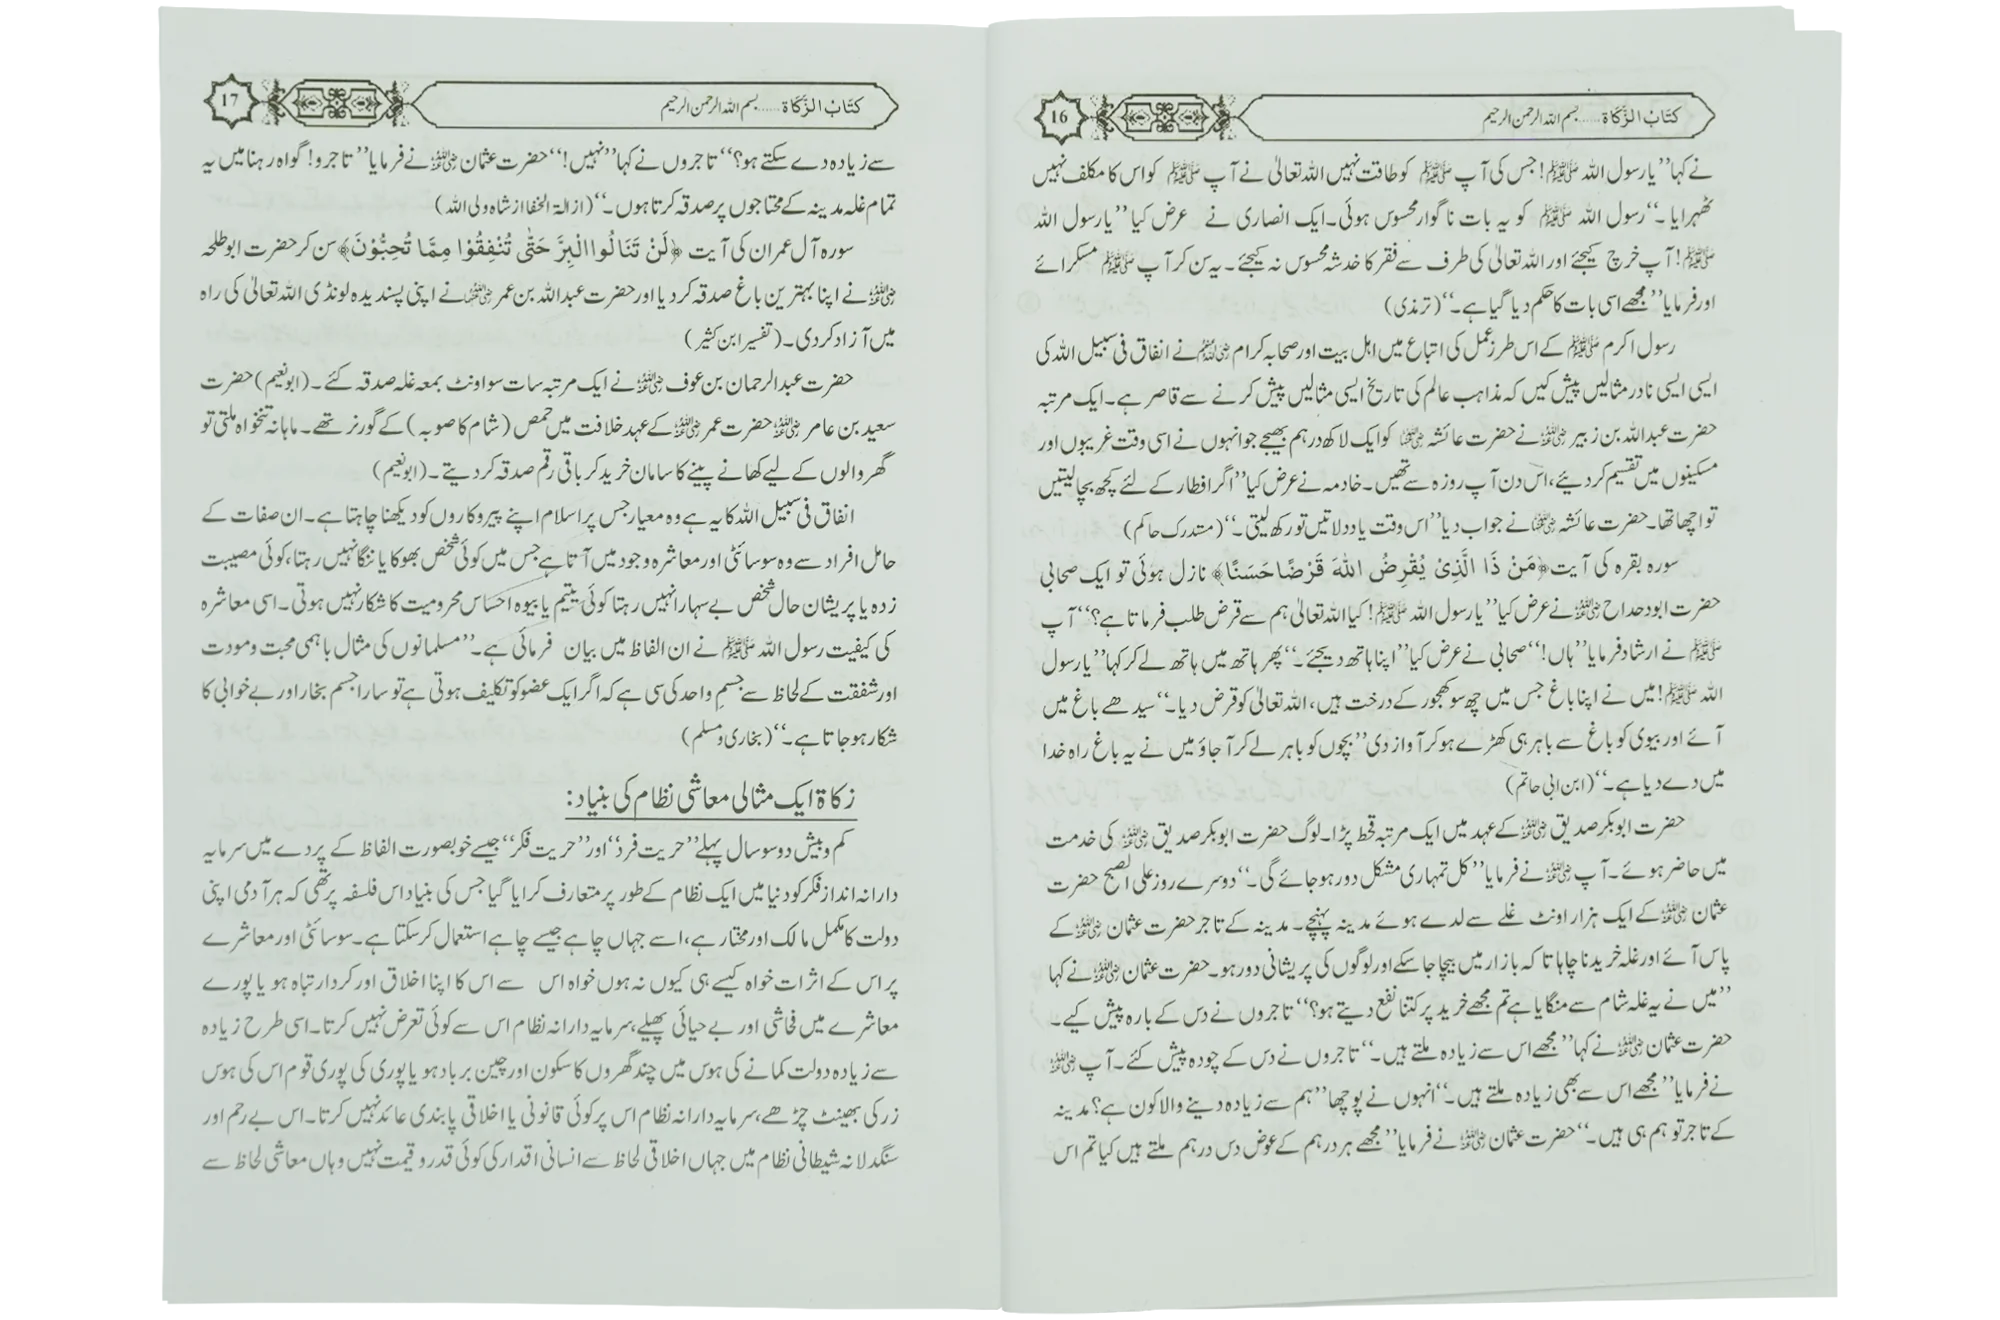 16
کتاب الزکاۃ ...... بسم اللہ الرحمن الرحیم
نے کہا ”یا رسول اللہ ﷺ! جس کی آپ ﷺ کو طاقت نہیں اللہ تعالیٰ نے آپ ﷺ کو اس کا مکلف نہیں
ٹھہرایا۔“ رسول اللہ ﷺ کو یہ بات ناگوار محسوس ہوئی۔ ایک انصاری نے عرض کیا ”یا رسول اللہ
ﷺ! آپ خرچ کیجئے اور اللہ تعالیٰ کی طرف سے فقر کا خدشہ محسوس نہ کیجئے۔ یہ سن کر آپ ﷺ مسکرائے
اور فرمایا ”مجھے اسی بات کا حکم دیا گیا ہے۔“ (ترمذی)
رسول اکرم ﷺ کے اس طرز عمل کی اتباع میں اہل بیت اور صحابہ کرام رضی اللہ عنہم نے انفاق فی سبیل اللہ کی
ایسی ایسی نادر مثالیں پیش کیں کہ مذاہب عالم کی تاریخ ایسی مثالیں پیش کرنے سے قاصر ہے۔ ایک مرتبہ
حضرت عبداللہ بن زبیر رضی اللہ عنہ نے حضرت عائشہ رضی اللہ عنہا کو ایک لاکھ درہم بھیجے جو انہوں نے اسی وقت غریبوں اور
مسکینوں میں تقسیم کر دیئے، اس دن آپ روزہ سے تھیں۔ خادمہ نے عرض کیا ”اگر افطار کے لئے کچھ بچا لیتیں
تو اچھا تھا۔ حضرت عائشہ رضی اللہ عنہا نے جواب دیا ”اس وقت یاد دلاتیں تو رکھ لیتی۔“ (مستدرک حاکم)
سورہ بقرہ کی آیت ﴿مَنْ ذَا الَّذِیْ یُقْرِضُ اللّٰہَ قَرْضًا حَسَنًا﴾ نازل ہوئی تو ایک صحابی
حضرت ابودحداح رضی اللہ عنہ نے عرض کیا ”یا رسول اللہ ﷺ! کیا اللہ تعالیٰ ہم سے قرض طلب فرماتا ہے؟“ آپ
ﷺ نے ارشاد فرمایا ”ہاں!“ صحابی نے عرض کیا ”اپنا ہاتھ دیجئے۔“ پھر ہاتھ میں ہاتھ لے کر کہا ”یا رسول
اللہ ﷺ! میں نے اپنا باغ جس میں چھ سو کھجور کے درخت ہیں، اللہ تعالیٰ کو قرض دیا۔“ سیدھے باغ میں
آئے اور بیوی کو باغ سے باہر ہی کھڑے ہو کر آواز دی ”بچوں کو باہر لے کر آ جاؤ میں نے یہ باغ راہ خدا
میں دے دیا ہے۔“ (ابن ابی حاتم)
حضرت ابوبکر صدیق رضی اللہ عنہ کے عہد میں ایک مرتبہ قحط پڑا۔ لوگ حضرت ابوبکر صدیق رضی اللہ عنہ کی خدمت
میں حاضر ہوئے۔ آپ رضی اللہ عنہ نے فرمایا ”کل تمہاری مشکل دور ہو جائے گی۔“ دوسرے روز علی الصبح حضرت
عثمان رضی اللہ عنہ کے ایک ہزار اونٹ غلے سے لدے ہوئے مدینہ پہنچے۔ مدینہ کے تاجر حضرت عثمان رضی اللہ عنہ کے
پاس آئے اور غلہ خریدنا چاہا تا کہ بازار میں بیچا جا سکے اور لوگوں کی پریشانی دور ہو۔ حضرت عثمان رضی اللہ عنہ نے کہا
”میں نے یہ غلہ شام سے منگایا ہے تم مجھے خرید پر کتنا نفع دیتے ہو؟“ تاجروں نے دس کے بارہ پیش کیے۔
حضرت عثمان رضی اللہ عنہ نے کہا ”مجھے اس سے زیادہ ملتے ہیں۔“ تاجروں نے دس کے چودہ پیش کئے۔ آپ رضی اللہ عنہ
نے فرمایا ”مجھے اس سے بھی زیادہ ملتے ہیں۔“ انہوں نے پوچھا ”ہم سے زیادہ دینے والا کون ہے؟ مدینہ
کے تاجر تو ہم ہی ہیں۔“ حضرت عثمان رضی اللہ عنہ نے فرمایا ”مجھے ہر درہم کے عوض دس درہم ملتے ہیں کیا تم اس
17
کتاب الزکاۃ ...... بسم اللہ الرحمن الرحیم
سے زیادہ دے سکتے ہو؟“ تاجروں نے کہا ”نہیں!“ حضرت عثمان رضی اللہ عنہ نے فرمایا ”تاجرو! گواہ رہنا میں یہ
تمام غلہ مدینہ کے محتاجوں پر صدقہ کرتا ہوں۔“ (ازالۃ الخفا از شاہ ولی اللہ)
سورہ آل عمران کی آیت ﴿لَنْ تَنَالُوا الْبِرَّ حَتّٰی تُنْفِقُوْا مِمَّا تُحِبُّوْنَ﴾ سن کر حضرت ابوطلحہ
رضی اللہ عنہ نے اپنا بہترین باغ صدقہ کر دیا اور حضرت عبداللہ بن عمر رضی اللہ عنہما نے اپنی پسندیدہ لونڈی اللہ تعالیٰ کی راہ
میں آزاد کر دی۔ (تفسیر ابن کثیر)
حضرت عبدالرحمان بن عوف رضی اللہ عنہ نے ایک مرتبہ سات سو اونٹ بمعہ غلہ صدقہ کئے۔ (ابونعیم) حضرت
سعید بن عامر رضی اللہ عنہ حضرت عمر رضی اللہ عنہ کے عہد خلافت میں حمص (شام کا صوبہ) کے گورنر تھے۔ ماہانہ تنخواہ ملتی تو
گھر والوں کے لیے کھانے پینے کا سامان خرید کر باقی رقم صدقہ کر دیتے۔ (ابونعیم)
انفاق فی سبیل اللہ کا یہ ہے وہ معیار جس پر اسلام اپنے پیروکاروں کو دیکھنا چاہتا ہے۔ ان صفات کے
حامل افراد سے وہ سوسائٹی اور معاشرہ وجود میں آتا ہے جس میں کوئی شخص بھوکا یا ننگا نہیں رہتا، کوئی مصیبت
زدہ یا پریشان حال شخص بے سہارا نہیں رہتا کوئی یتیم یا بیوہ احساس محرومیت کا شکار نہیں ہوتی۔ اسی معاشرہ
کی کیفیت رسول اللہ ﷺ نے ان الفاظ میں بیان فرمائی ہے۔ ”مسلمانوں کی مثال باہمی محبت و مودت
اور شفقت کے لحاظ سے جسم واحد کی سی ہے کہ اگر ایک عضو کو تکلیف ہوتی ہے تو سارا جسم بخار اور بے خوابی کا
شکار ہو جاتا ہے۔“ (بخاری و مسلم)
زکاۃ ایک مثالی معاشی نظام کی بنیاد:
کم و بیش دو سو سال پہلے ”حریت فرد“ اور ”حریت فکر“ جیسے خوبصورت الفاظ کے پردے میں سرمایہ
دارانہ انداز فکر کو دنیا میں ایک نظام کے طور پر متعارف کرایا گیا جس کی بنیاد اس فلسفہ پر تھی کہ ہر آدمی اپنی
دولت کا مکمل مالک اور مختار ہے، اسے جہاں چاہے جیسے چاہے استعمال کر سکتا ہے۔ سوسائٹی اور معاشرے
پر اس کے اثرات خواہ کیسے ہی کیوں نہ ہوں خواہ اس سے اس کا اپنا اخلاق اور کردار تباہ ہو یا پورے
معاشرے میں فحاشی اور بے حیائی پھیلے، سرمایہ دارانہ نظام اس سے کوئی تعرض نہیں کرتا۔ اسی طرح زیادہ
سے زیادہ دولت کمانے کی ہوس میں چند گھروں کا سکون اور چین برباد ہو یا پوری کی پوری قوم اس کی ہوس
زر کی بھینٹ چڑھے، سرمایہ دارانہ نظام اس پر کوئی قانونی یا اخلاقی پابندی عائد نہیں کرتا۔ اس بے رحم اور
سنگدلانہ شیطانی نظام میں جہاں اخلاقی لحاظ سے انسانی اقدار کی کوئی قدر و قیمت نہیں وہاں معاشی لحاظ سے